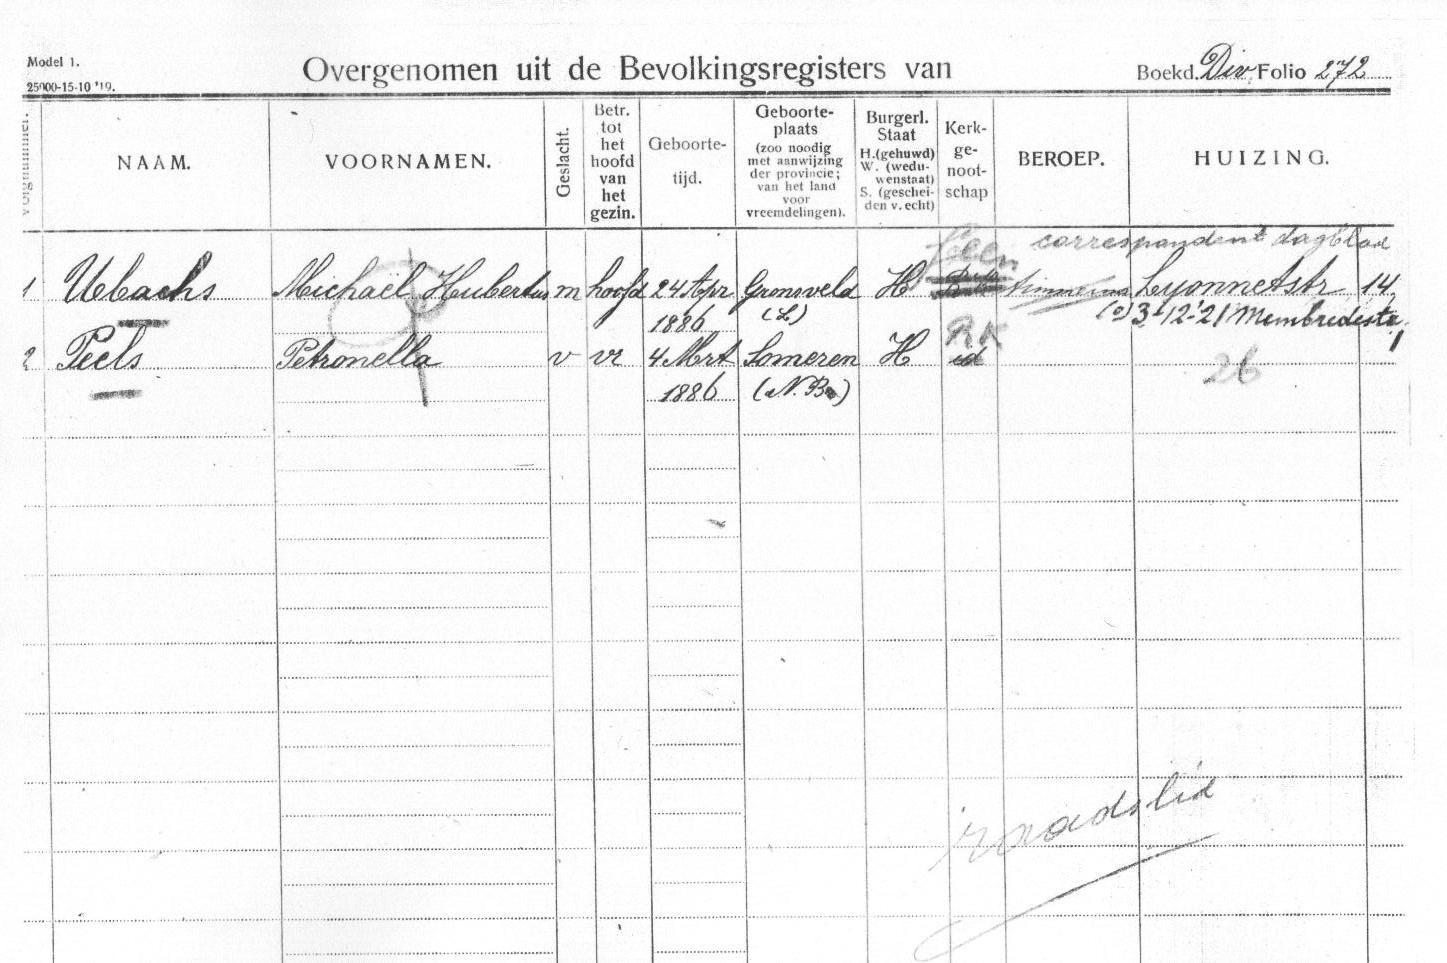 Model 1.
25000-15-10 '19.
Overgenomen uit de Bevolkingsregisters van
Boekd. Div. Folio 272
Volgnummer.
NAAM.
VOORNAMEN.
Geslacht.
Betr. tot het hoofd van het gezin.
Geboorte-
tijd.
Geboorte-
plaats
(zoo noodig
met aanwijzing
der provincie;
van het land
voor
vreemdelingen).
Burgerl.
Staat
H.(gehuwd)
W. (wedu-
wenstaat)
S. (geschei-
den v. echt)
Kerk-
ge-
noot-
schap
BEROEP.
HUIZING.
geen correspondent dagblad
1 Ubachs Michaël Hubertus m hoofd 24 Apr Gronsveld H Lyonnetstr 14
1886 (L.) (o) 3-12-21 Membredestr.
RK
2 Peels Petronella v vr 4 Mrt Someren H id
26
1886 (N.Br.)
raadslid